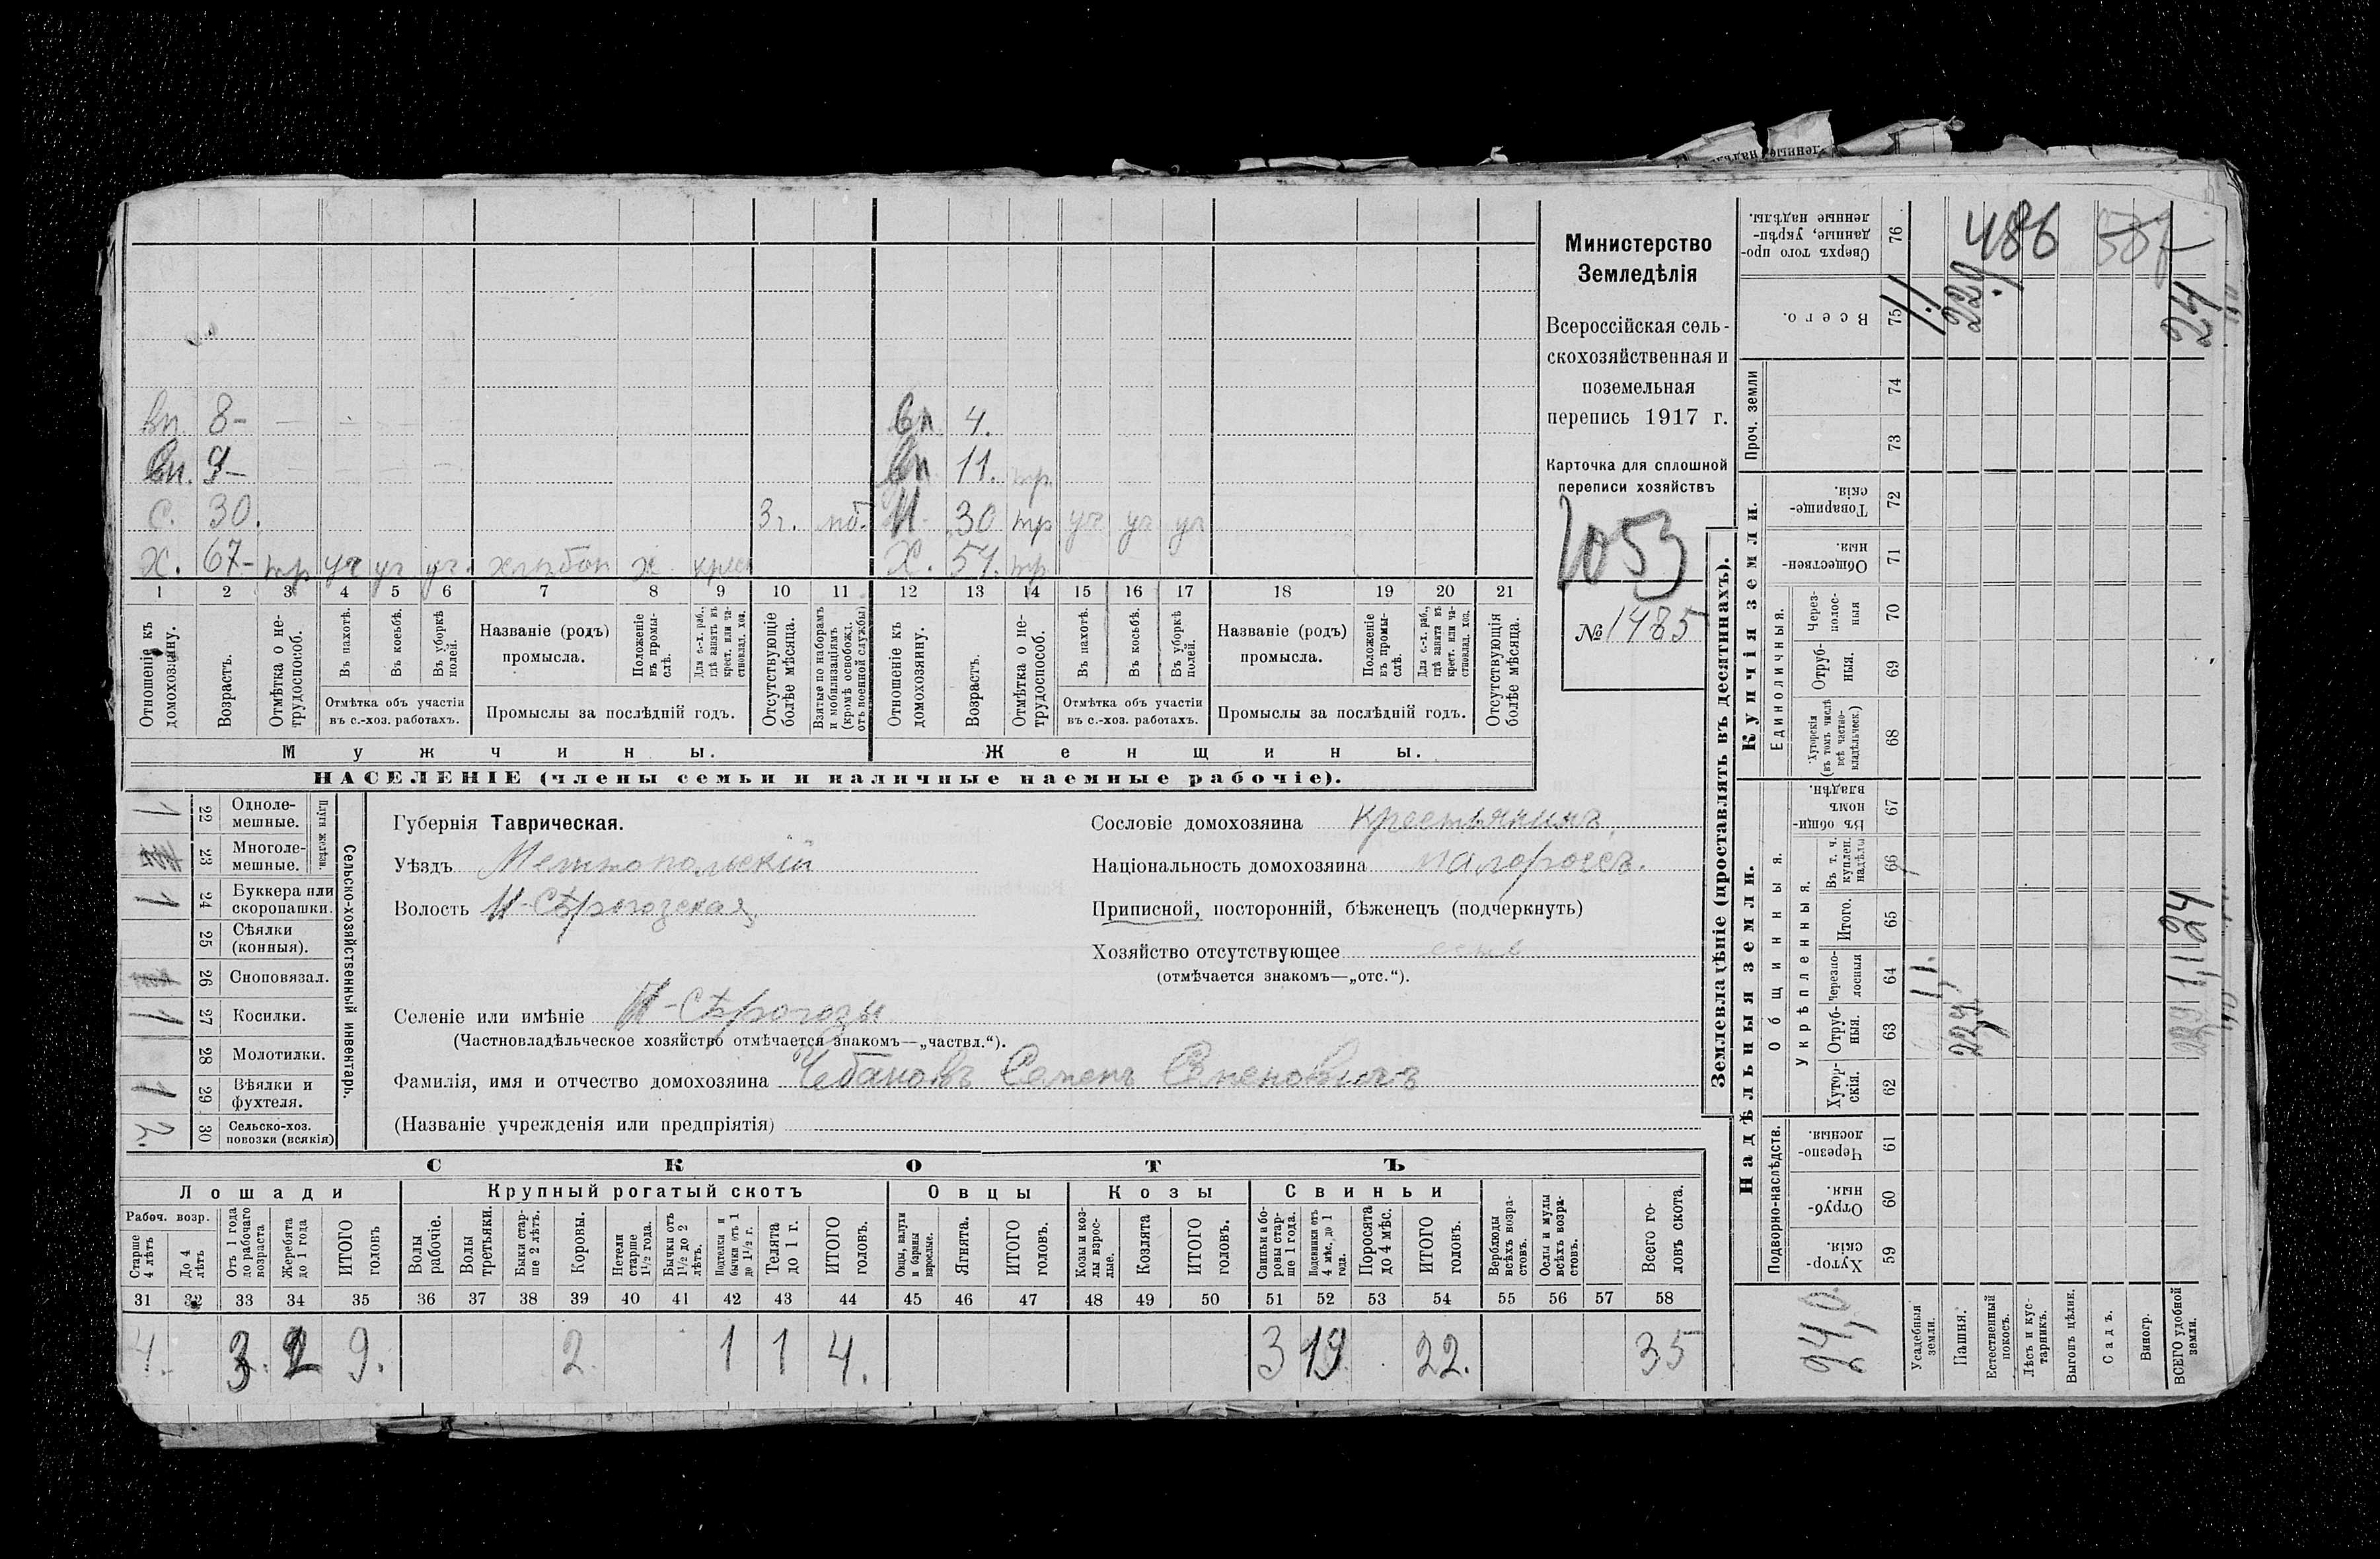 Министерство
Земледѣлія
Всероссійская сель-
скохозяйственная и
поземельная
перепись 1917 г.
Карточка для сплошной
переписи хозяйствъ
1053
№ 1485
вп. 8- вп 4.
вп. 9- вп 11. тр
с. 30. 3г. мб. Н. 30 тр уч уч уч
Х. 67- тр уч уч уч. хлѣбоп х. крест Х. 57. тр.
1 2 3 4 5 6 7 8 9 10 11 12 13 14 15 16 17 18 19 20 21
Отношеніе къ домохозяину.
Возрастъ.
Отмѣтка о не-трудоспособ.
Въ пахотѣ.
Въ косьбѣ.
Въ уборкѣ полей.
Отмѣтка объ участіи въ с.-хоз. работахъ.
Названіе (родъ) промысла.
Положеніе въ промы-слѣ.
Для с.-х. раб., гдѣ занятъ въ крест. или ча-стновлад. хоз.
Промыслы за послѣдній годъ.
Отсутствующіе болѣе мѣсяца.
Взятые по наборамъ и мобилизаціямъ (кромѣ освобожд. отъ военной службы)
Отношеніе къ домохозяину.
Возрастъ.
Отмѣтка о не-трудоспособ.
Въ пахотѣ.
Въ косьбѣ.
Въ уборкѣ полей.
Отмѣтка объ участіи въ с.-хоз. работахъ.
Названіе (родъ) промысла.
Положеніе въ промы-слѣ.
Для с.-х. раб., гдѣ занята въ крест. или ча-стновлад. хоз.
Промыслы за послѣдній годъ.
Отсутствующія болѣе мѣсяца.
Мужчины. Женщины.
НАСЕЛЕНІЕ (члены семьи и наличные наемные рабочіе).
Сельско-хозяйственный инвентарь.
Плуги желѣзн.
1 22 Одноле-мешные.
23 Многоле-мешные.
1 24 Буккера или скоропашки.
25 Сѣялки (конныя).
26 Сноповязал.
1 27 Косилки.
28 Молотилки.
1 29 Вѣялки и фухтеля.
2. 30 Сельско-хоз. повозки (всякія)
Губернія Таврическая.
Уѣздъ Мелитопольскій
Волость Н-Сѣрогозская
Сословіе домохозяина крестьянинъ.
Національность домохозяина малороссъ.
Приписной, посторонній, бѣженецъ (подчеркнуть)
Хозяйство отсутствующее
(отмѣчается знакомъ—„отс.“).
Селеніе или имѣніе Н-Сѣрогозы
(Частновладѣльческое хозяйство отмѣчается знакомъ—„частвл.“).
Фамилія, имя и отчество домохозяина Чебановъ Семенъ Семеновичъ
(Названіе учрежденія или предпріятія)
СКОТЪ
Лошади Крупный рогатый скотъ Овцы Козы Свиньи
Рабоч. возр.
Старше 4 лѣтъ
До 4 лѣтъ
Отъ 1 года до рабочаго возраста
Жеребята до 1 года
ИТОГО головъ
Волы рабочіе.
Волы третьяки.
Быки стар-ше 2 лѣтъ.
Коровы.
Нетели старше 1½ года.
Бычки отъ 1½ до 2 лѣтъ.
Подтелки и бычки отъ 1 до 1½ г.
Телята до 1 г.
ИТОГО головъ.
Овцы, валухи и бараны взрослые.
Ягнята.
ИТОГО головъ.
Козы и коз-лы взрос-лые.
Козлята
ИТОГО головъ.
Свиньи и бо-ровы стар-ше 1 года.
Подсвинки отъ 4 мѣс. до 1 года.
Поросята до 4 мѣс.
ИТОГО головъ.
Верблюды всѣхъ возра-стовъ.
Ослы и мулы всѣхъ возра-стовъ.
Всего го-ловъ скота.
31 32 33 34 35 36 37 38 39 40 41 42 43 44 45 46 47 48 49 50 51 52 53 54 55 56 57 58
4. 3. 2 9. 2. 1 1 4. 3 19 22. 35
Землевладѣніе (проставлять въ десятинахъ).
Надѣльныя земли.
Купчія земли.
Проч. земли
Подворно-наслѣдств.
Общинныя.
Укрѣпленныя.
Единоличныя.
Хутор-скія. 59
Отруб-ныя. 60
Черезпо-лосныя. 61
Хутор-скія. 62
Отруб-ныя. 63
Черезпо-лосныя 64
Итого. 65
Въ т. ч. куплен. надѣлы 66
Въ общин-номъ владѣн. 67
Хуторскія (въ томъ числѣ всѣ частно-владѣльческ.) 68
Отруб-ныя. 69
Через-полос-ныя 70
Обществен-ныя. 71
Товарище-скія. 72
73
74
Всего. 75
Сверхъ того про-данные, укрѣп-ленные надѣлы. 76
24,0
Усадебныя земли. 1,1. 1,1
Пашня.
Естественный покосъ.
Лѣсъ и кус-тарникъ.
Выгонъ цѣлин.
Садъ.
Виногр.
ВСЕГО удобной земли.
486